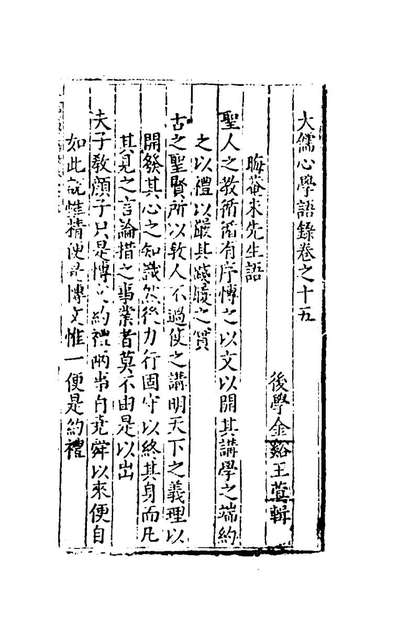 大儒心學語錄卷之十五
後學金谿王蓂輯
晦菴朱先生語
聖人之教循循有序博之以文以開其講學之端約
之以禮以嚴其踐履之實
古之聖賢所以教人不過使之講明天下之義理以
開發其心之知識然後力行固守以終其身而凡
其見之言論措之事業者莫不由是以出
夫子教顏子只是博文約禮兩事自堯舜以來便自
如此說惟精便是博文惟一便是約禮